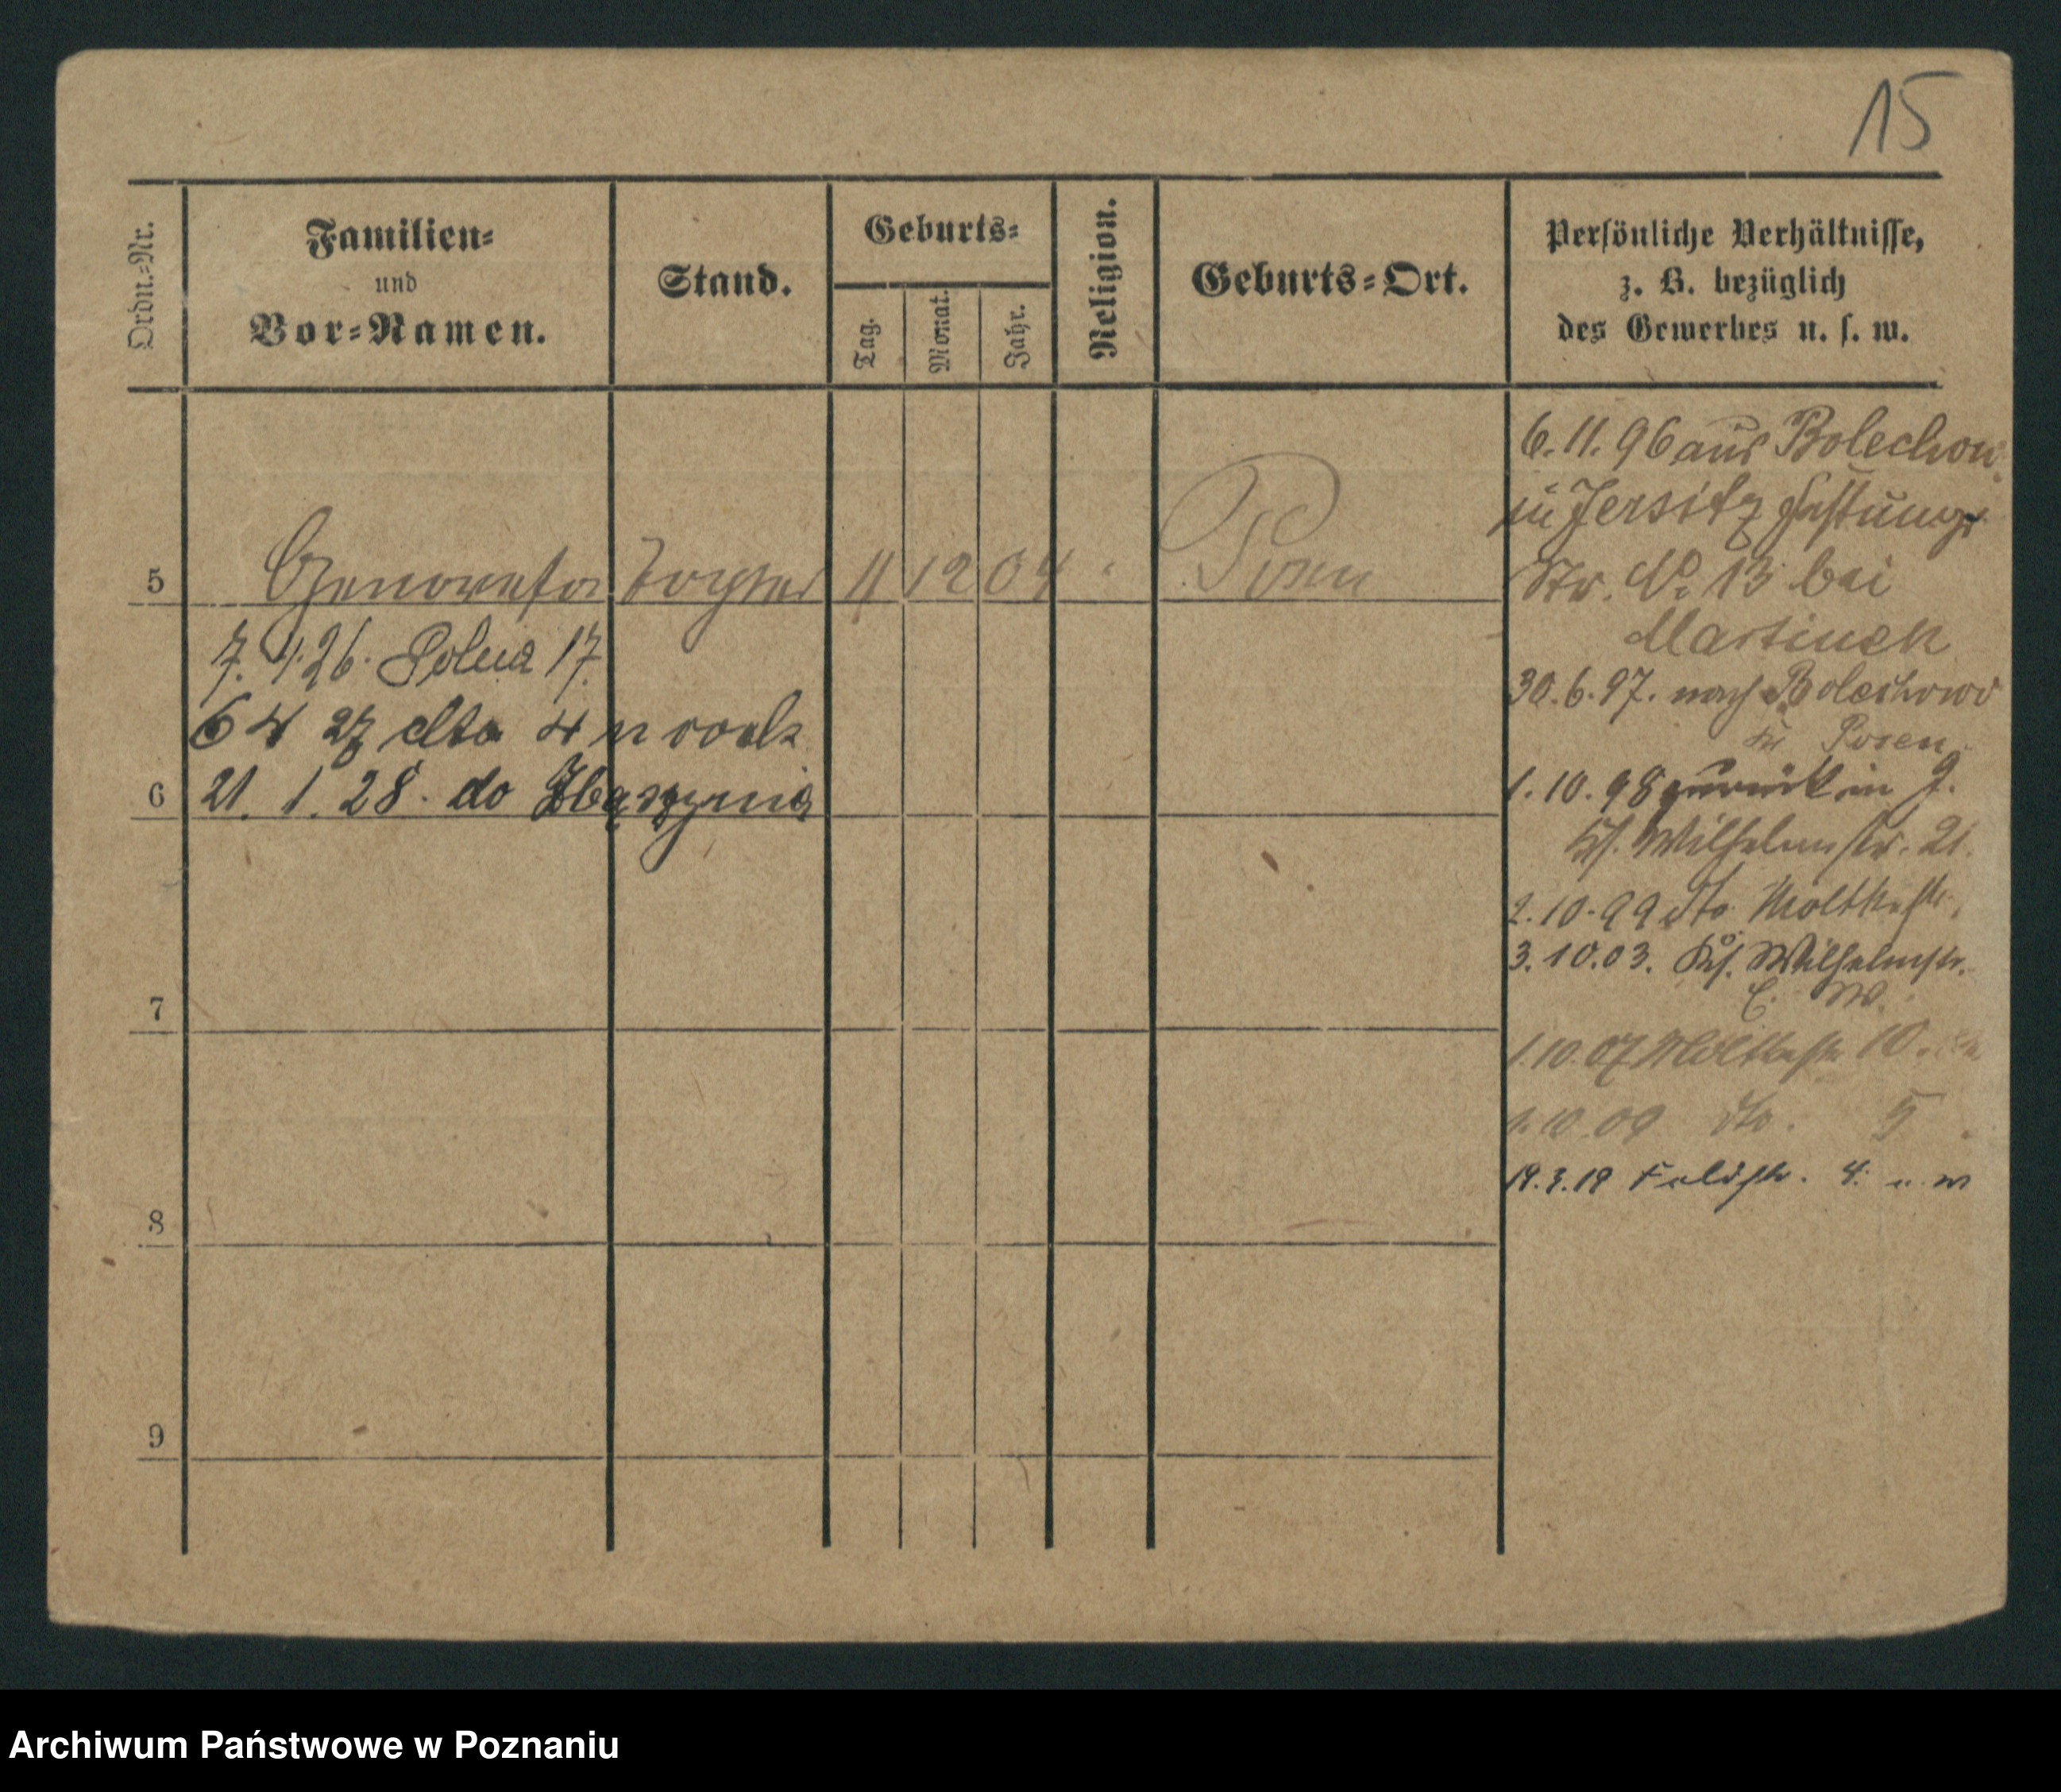 15
Ordn.-Nr.
Familien-
und
Vor-Namen.
Stand.
Geburts-
Tag.
Monat.
Jahr.
Religion.
Geburts-Ort.
Persönliche Verhältnisse,
z. B. bezüglich
des Gewerbes u. s. w.
5 Genowefa Tochter 11 12 04 Posen
7. 4. 26. Polna 17.
6 4 27 dto 4 n
6 21. 1. 28. do Zbąszynia
7
8
9
6. 11. 96 aus Bolechowo
in Jersitz Festungs
Str. No 13 bei
Martinek
30. 6. 97. nach Bolechowo
Kr Posen
1. 10. 98 zurück in J.
Ks. Wilhelmstr. 21.
2. 10. 99 dto Moltkestr.
3. 10. 03. Ks. Wilhelmstr.
E. W.
1. 10. 07 Moltkestr 10.
1. 10. 09 dto. 5
19. 3. 19 Feldstr. 4.
Archiwum Państwowe w Poznaniu